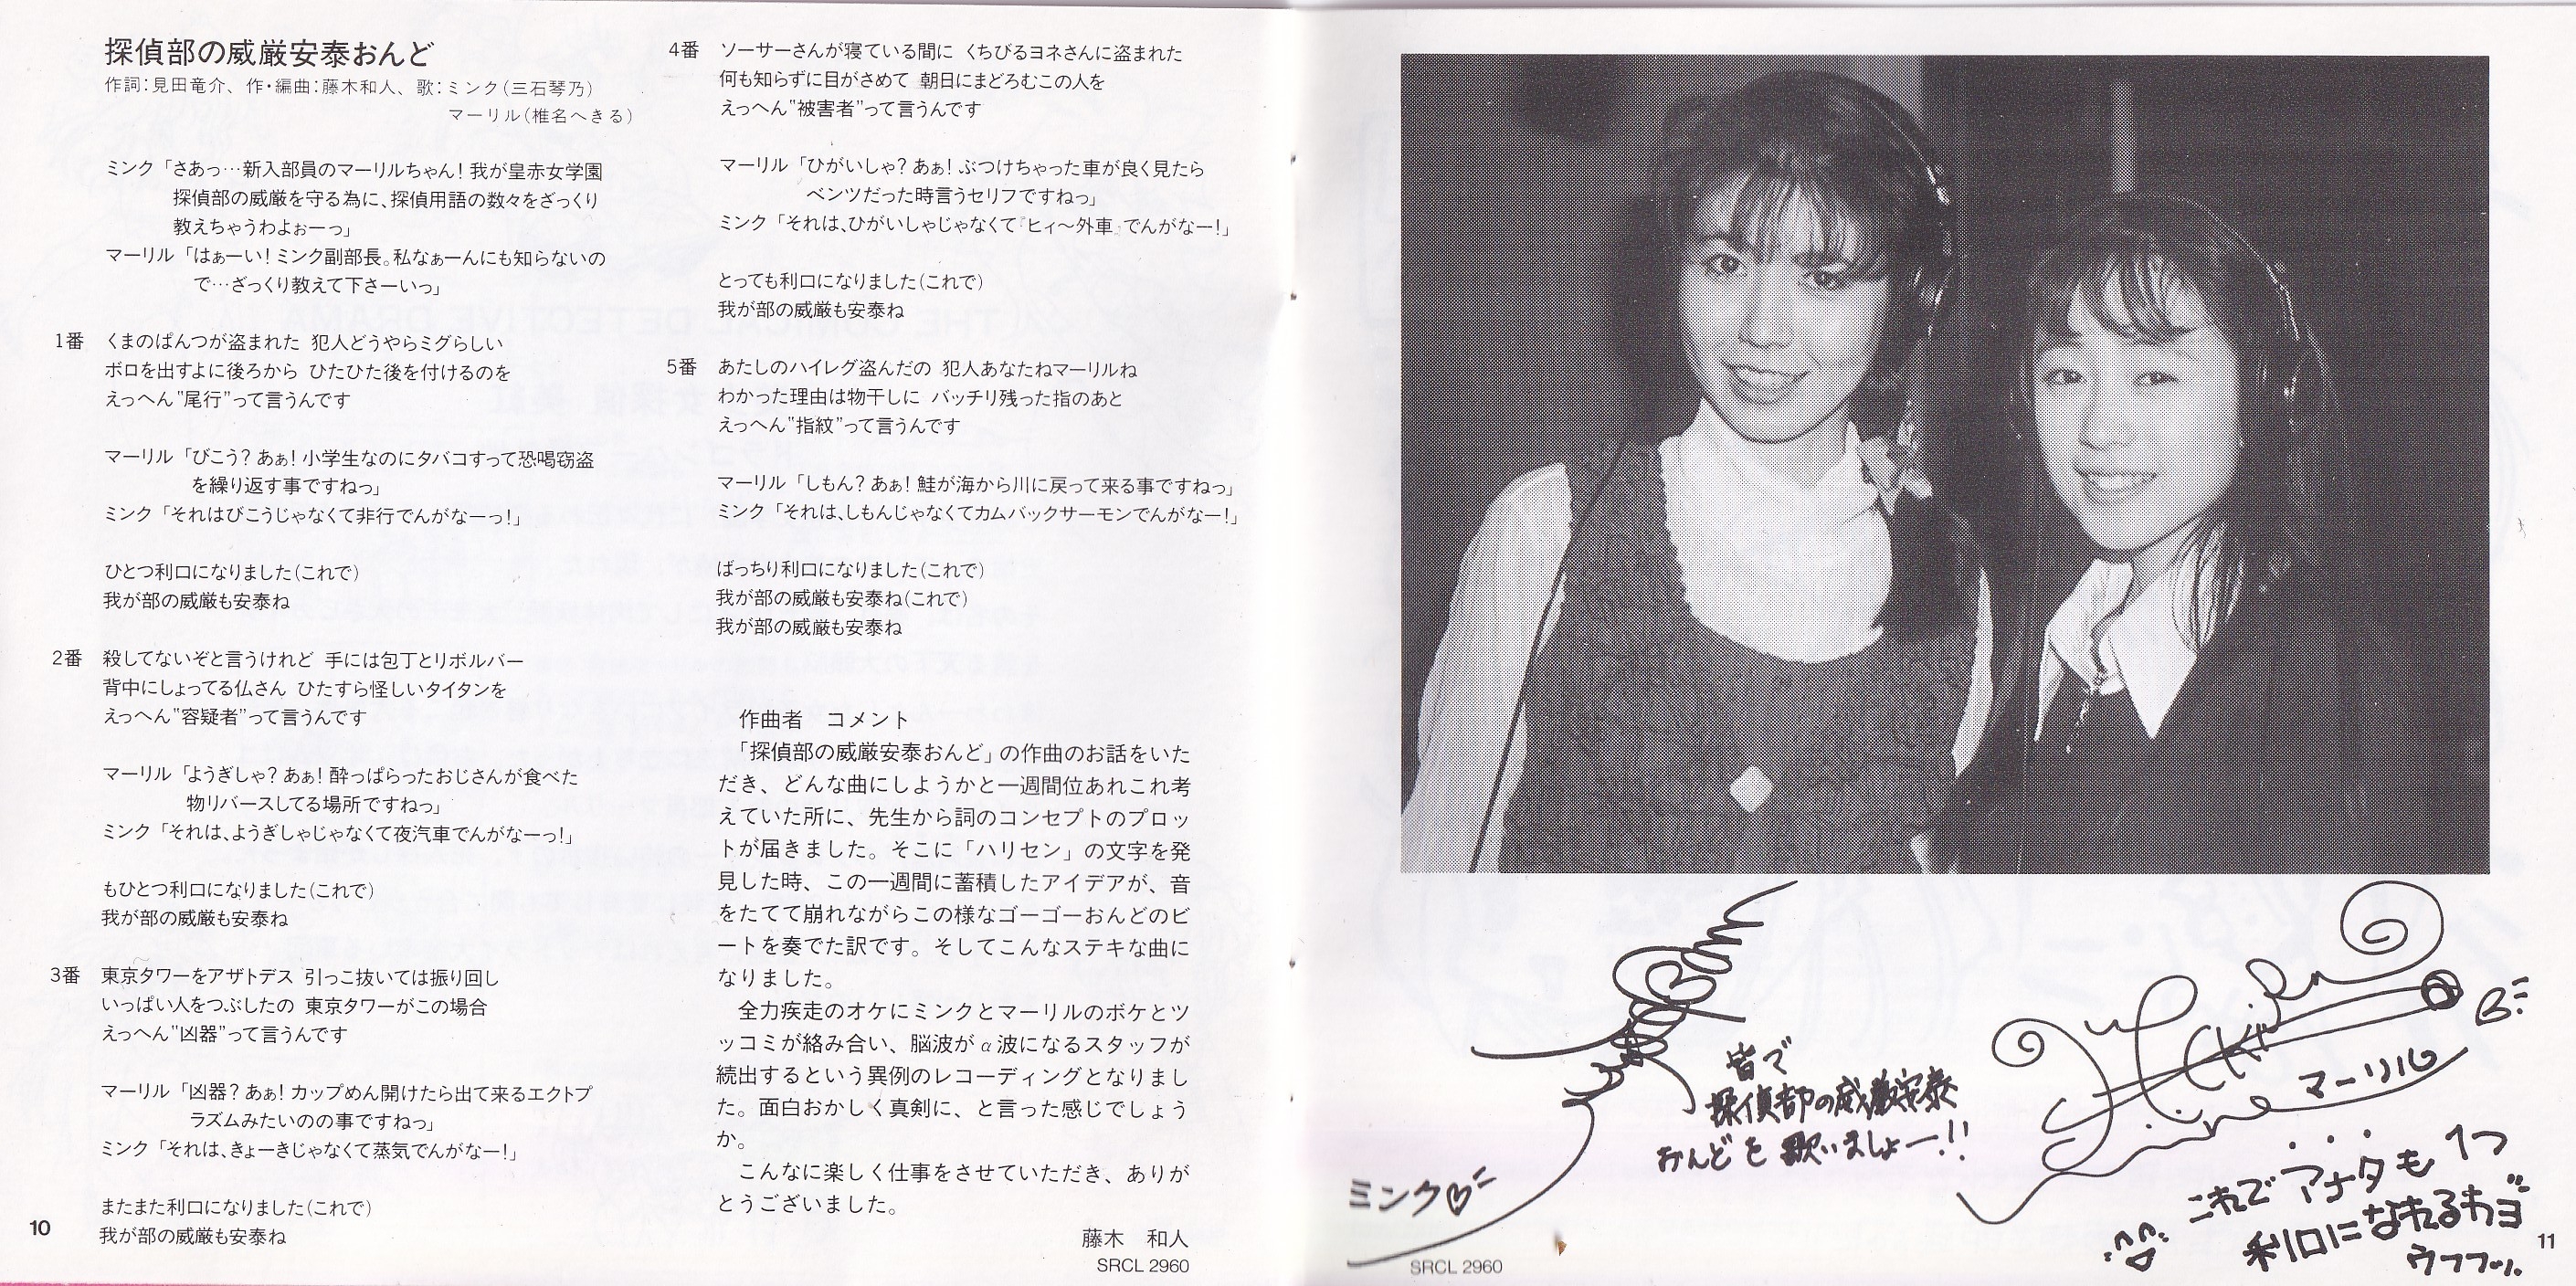 探偵部の威厳安泰おんど
作詞：見田竜介、作・編曲：藤木和人、歌：ミンク（三石琴乃）
マーリル（椎名へきる）
ミンク「さあっ…新入部員のマーリルちゃん！我が皇赤女学園
探偵部の威厳を守る為に、探偵用語の数々をざっくり
教えちゃうわよぉーっ」
マーリル「はぁーい！ミンク副部長。私なぁーんにも知らないの
で…ざっくり教えて下さーいっ」
1番 くまのぱんつが盗まれた 犯人どうやらミグらしい
ボロを出すよに後ろから ひたひた後を付けるのを
えっへん"尾行"って言うんです
マーリル「びこう？あぁ！小学生なのにタバコすって恐喝窃盗
を繰り返す事ですねっ」
ミンク「それはびこうじゃなくて非行でんがなーっ！」
ひとつ利口になりました（これで）
我が部の威厳も安泰ね
2番 殺してないぞと言うけれど 手には包丁とリボルバー
背中にしょってる仏さん ひたすら怪しいタイタンを
えっへん"容疑者"って言うんです
マーリル「ようぎしゃ？あぁ！酔っぱらったおじさんが食べた
物リバースしてる場所ですねっ」
ミンク「それは、ようぎしゃじゃなくて夜汽車でんがなーっ！」
もひとつ利口になりました（これで）
我が部の威厳も安泰ね
3番 東京タワーをアザトデス 引っこ抜いては振り回し
いっぱい人をつぶしたの 東京タワーがこの場合
えっへん"凶器"って言うんです
マーリル「凶器？あぁ！カップめん開けたら出て来るエクトプ
ラズムみたいのの事ですねっ」
ミンク「それは、きょーきじゃなくて蒸気でんがなー！」
またまた利口になりました（これで）
我が部の威厳も安泰ね
10
4番 ソーサーさんが寝ている間に くちびるヨネさんに盗まれた
何も知らずに目がさめて 朝日にまどろむこの人を
えっへん"被害者"って言うんです
マーリル「ひがいしゃ？あぁ！ぶつけちゃった車が良く見たら
ベンツだった時言うセリフですねっ」
ミンク「それは、ひがいしゃじゃなくて『ヒィ〜外車』でんがなー！」
とっても利口になりました（これで）
我が部の威厳も安泰ね
5番 あたしのハイレグ盗んだの 犯人あなたねマーリルね
わかった理由は物干しに バッチリ残った指のあと
えっへん"指紋"って言うんです
マーリル「しもん？あぁ！鮭が海から川に戻って来る事ですねっ」
ミンク「それは、しもんじゃなくてカムバックサーモンでんがなー！」
ばっちり利口になりました（これで）
我が部の威厳も安泰ね（これで）
我が部の威厳も安泰ね
作曲者 コメント
「探偵部の威厳安泰おんど」の作曲のお話をいた
だき、どんな曲にしようかと一週間位あれこれ考
えていた所に、先生から詞のコンセプトのプロッ
トが届きました。そこに「ハリセン」の文字を発
見した時、この一週間に蓄積したアイデアが、音
をたてて崩れながらこの様なゴーゴーおんどのビ
ートを奏でた訳です。そしてこんなステキな曲に
なりました。
全力疾走のオケにミンクとマーリルのボケとツ
ッコミが絡み合い、脳波がα波になるスタッフが
続出するという異例のレコーディングとなりまし
た。面白おかしく真剣に、と言った感じでしょう
か。
こんなに楽しく仕事をさせていただき、ありが
とうございました。
藤木 和人
SRCL 2960
皆で
探偵部の威厳安泰
おんどを歌いましょー!!
ミンク
マーリル
これでアナタも1つ
利口になれるわヨ
ウフフッ
SRCL 2960
11